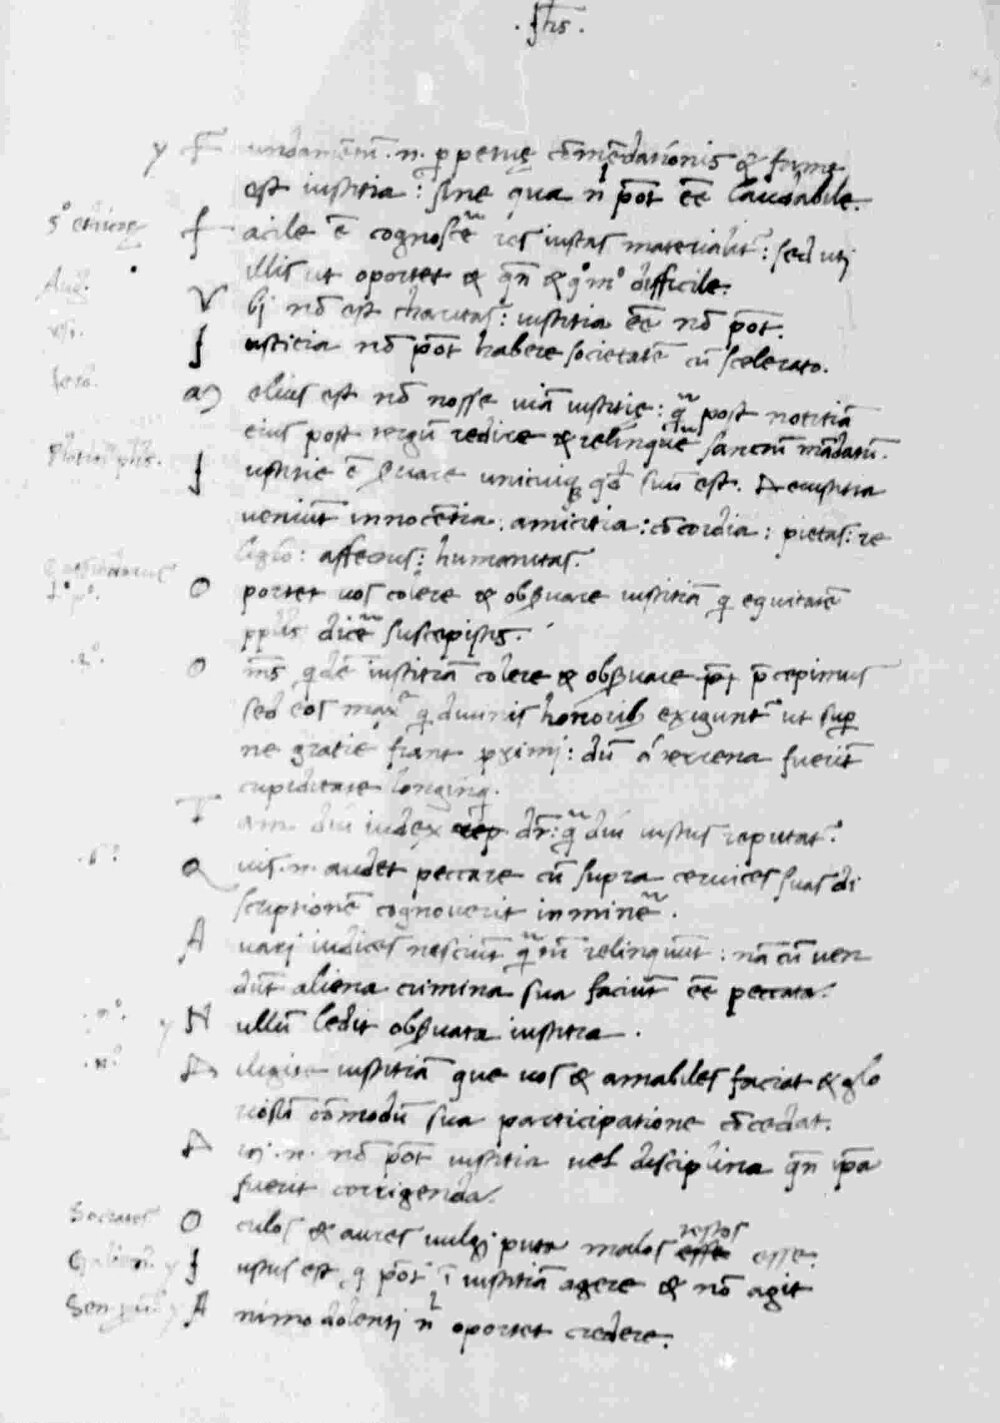 .Jhs.
y F undamētū .n. ꝑpetue cōmēdationis & fame
est iustitia : sine qua nl pōt eē laudabile.
5° ethicor f acile ē cognosc̄e res iustas materialit : sed uti
illis ut oportet & qn̄ & q°m° difficile:
Aug. V bj nō est charitas : iustitia eē nō pōt.
J usticia nō pōt habere societatē cū scelerato.
Jero. M elius est nō nosse uiā iustitie : q̄ post notitiā
eius post tergū redire & relinqūe sanctū mādatū.
J ustitie ē ẜuare unicuiqꝫ qd̄ suū est. De iustitia
ueniūt innocētia : amicitia : cōcordia : pietas : re
ligio : affectus : humanitas.
Cassiodorus O portet uos colere & obẜuare iustitiā q equitatē
p°. pp̄lis dic̄e suscepistis.
.2°. O m̄s qdē iustitiā colere & obẜuare p̄cepimus
sed eos max̄e q diuinis honorib exigunt ut sup
ne gratie fiant ꝓximi : dū a terrena fuerīt
cupiditate longinq.
T am diu iudex dr̄ : q̄diu iustus reputat.
Q uis .n. audet peccare cū supra ceruices suas di
scriptionē cognouerit inmin̄e.
A uarj iudices nesciūt q̄tū relinquūt : nā cū uen
dūt aliena crimina sua faciūt eē peccata.
y N ullū ledit obẜuata iustitia.
D iligite iustitiā que uos & amabiles faciat & glo
riosū cōmodū sua participatione cōcedat.
D irj .n. nō pōt iustitia uel disciplina qn̄ ip̄a
fuerit corrigenda.
Socrates O culos & aures uulgi puta malos testes esse.
y J ustus est q pōt ī iustitiā agere & nō agit
Sen. y A nimo dolenti nl oportet credere.